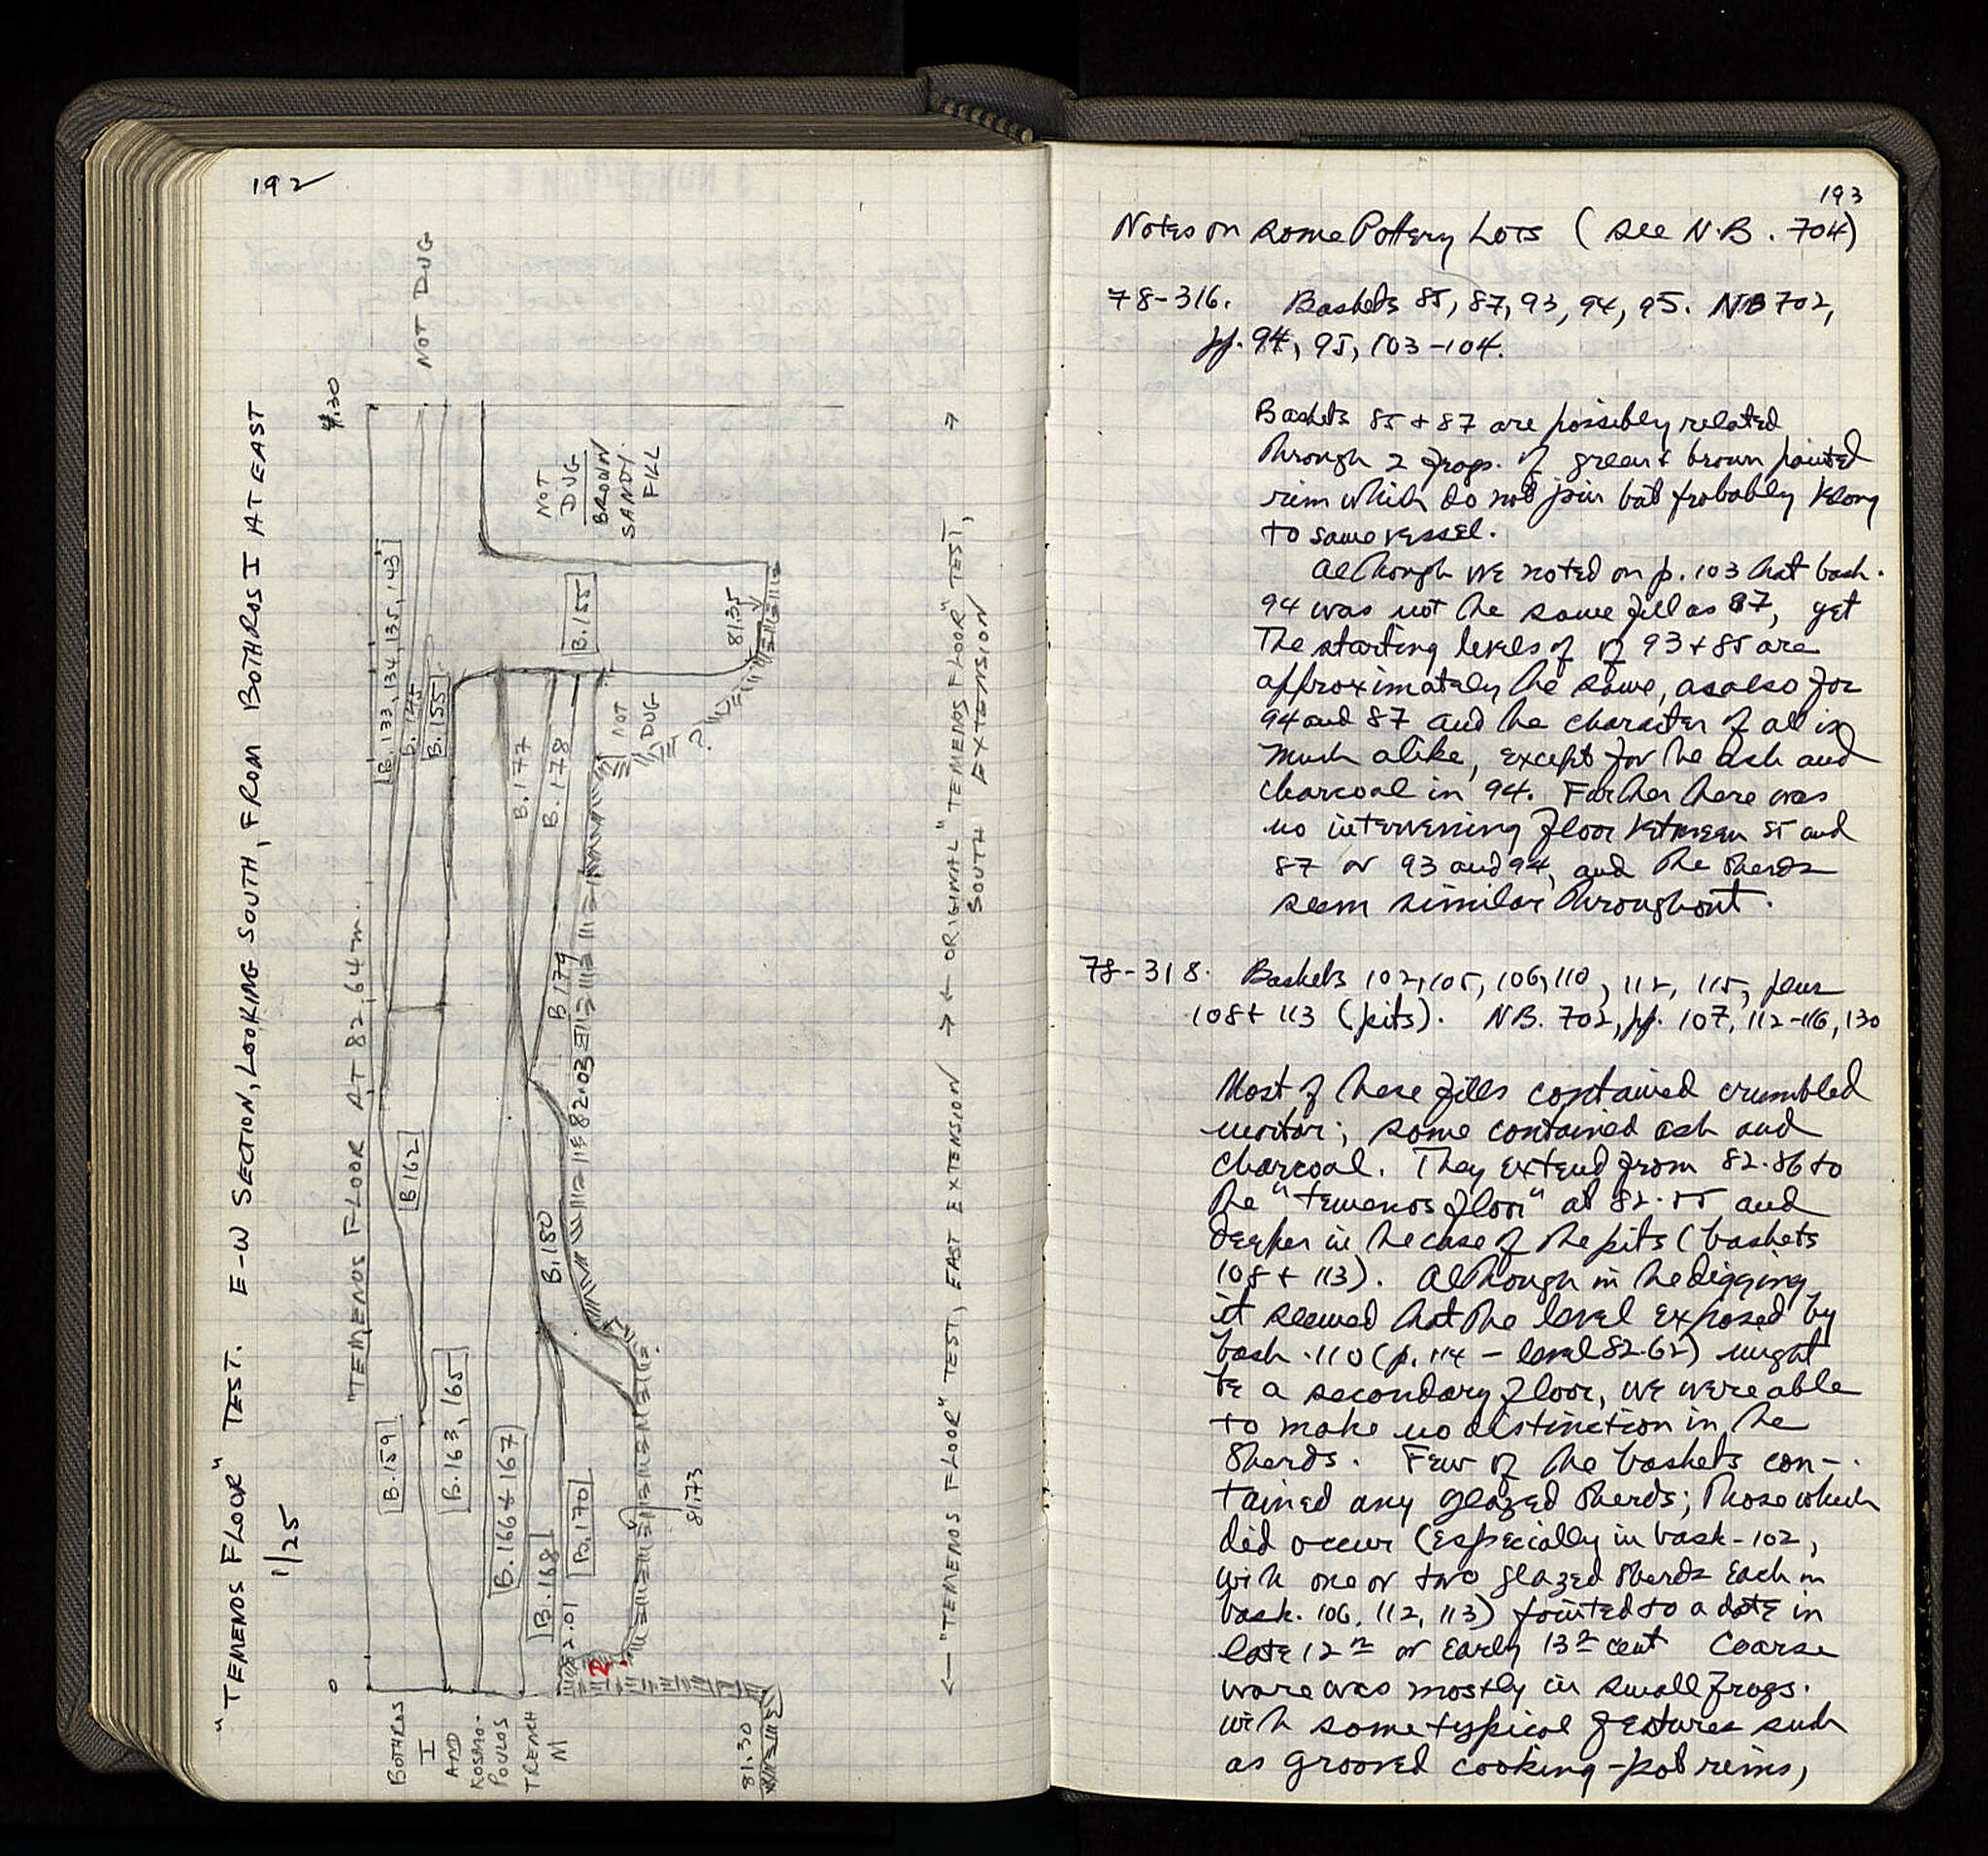 192
"TEMENOS FLOOR" TEST. E-W SECTION, LOOKING SOUTH, FROM BOTHROS I AT EAST
1/25
0
4.30
NOT DUG
"TEMENOS FLOOR AT 82.64 m.
B. 133, 134, 135, 143
B. 145
B. 155
B. 159
B 162
B. 163, 165
B. 166 & 167
B. 168
B. 170
B. 177
B. 178
B 179
B. 180
B. 155
NOT
DUG
BROWN
SANDY
FILL
NOT
DUG
?
81.35
82.03
2.01
81.73
81.30
BOTHROS
I
AND
KOSMO-
POULOS
TRENCH
M
← "TEMENOS FLOOR" TEST, EAST EXTENSION → ← ORIGINAL "TEMENOS FLOOR" TEST, →
SOUTH EXTENSION
193
Notes on some Pottery Lots (see N.B. 704)
78-316. Baskets 85, 87, 93, 94, 95. NB 702,
pp. 94, 95, 103-104.
Baskets 85 + 87 are possibly related
through 2 frags. of green & brown painted
rim which do not join but probably belong
to same vessel.
Although we noted on p. 103 that bask.
94 was not the same fill as 87, yet
the starting levels of of 93 + 85 are
approximately the same, as also for
94 and 87 and the character of all is
much alike, except for the ash and
charcoal in 94. Further there was
no intervening floor between 85 and
87 or 93 and 94, and the sherds
seem similar throughout.
78-318. Baskets 102, 105, 106, 110, 112, 115, plus
108 + 113 (pits). NB. 702, pp. 107, 112-116, 130
Most of these fills contained crumbled
mortar; some contained ash and
charcoal. They extend from 82.86 to
the "temenos floor" at 82.55 and
deeper in the case of the pits (baskets
108 + 113). Although in the digging
it seemed that the level exposed by
bask. 110 (p. 114 - level 82.62) might
be a secondary floor, we were able
to make no distinction in the
sherds. Few of the baskets con-
tained any glazed sherds; those which
did occur (especially in bask-102,
with one or two glazed sherds each in
bask. 106, 112, 113) pointed to a date in
late 12th or early 13th cent Coarse
ware was mostly in small frags.
with some typical features such
as grooved cooking-pot rims,